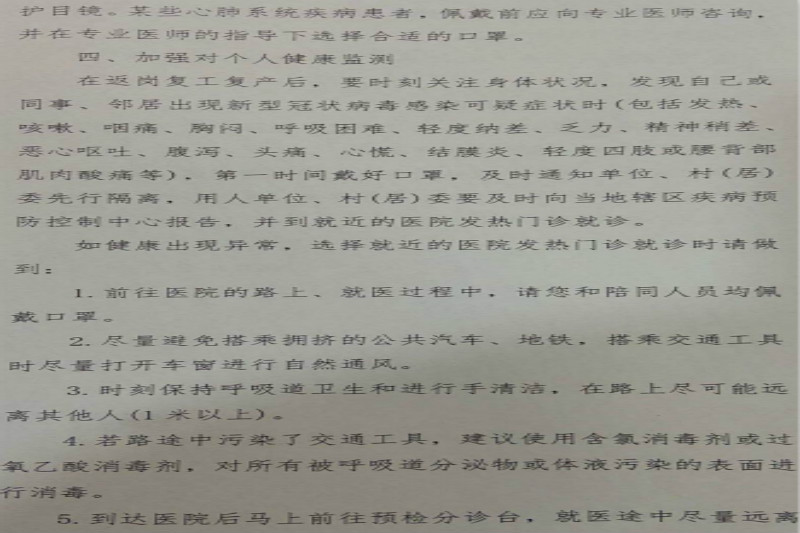 护目镜。某些心肺系统疾病患者，佩戴前应向专业医师咨询，
并在专业医师的指导下选择合适的口罩。
四、加强对个人健康监测
在返岗复工复产后，要时刻关注身体状况，发现自己或
同事、邻居出现新型冠状病毒感染可疑症状时(包括发热、
咳嗽、咽痛、胸闷、呼吸困难、轻度纳差、乏力、精神稍差、
恶心呕吐、腹泻、头痛、心慌、结膜炎、轻度四肢或腰背部
肌肉酸痛等)，第一时间戴好口罩，及时通知单位、村(居)
委先行隔离，用人单位、村(居)委要及时向当地辖区疾病预
防控制中心报告，并到就近的医院发热门诊就诊。
如健康出现异常，选择就近的医院发热门诊就诊时请做
到：
1. 前往医院的路上、就医过程中，请您和陪同人员均佩
戴口罩。
2. 尽量避免搭乘拥挤的公共汽车、地铁，搭乘交通工具
时尽量打开车窗进行自然通风。
3. 时刻保持呼吸道卫生和进行手清洁，在路上尽可能远
离其他人(1 米以上)。
4. 若路途中污染了交通工具，建议使用含氯消毒剂或过
氧乙酸消毒剂，对所有被呼吸道分泌物或体液污染的表面进
行消毒。
5. 到达医院后马上前往预检分诊台，就医途中尽量远离